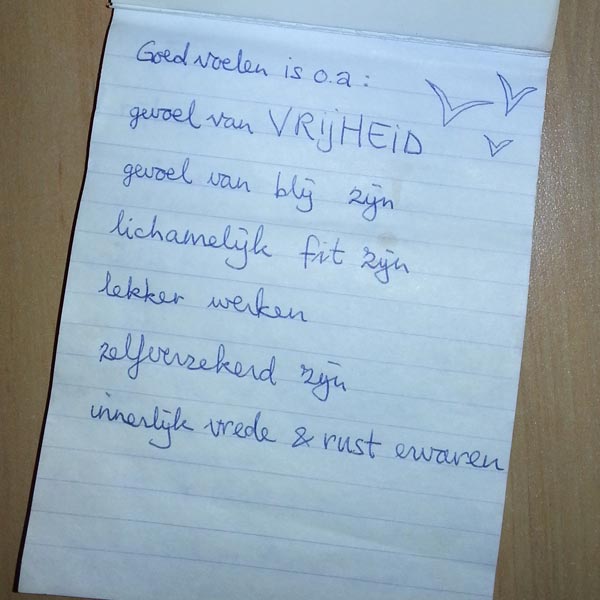 Goed voelen is o.a:
gevoel van VRIJHEID
gevoel van blij zijn
lichamelijk fit zijn
lekker werken
zelfverzekerd zijn
innerlijk vrede & rust ervaren